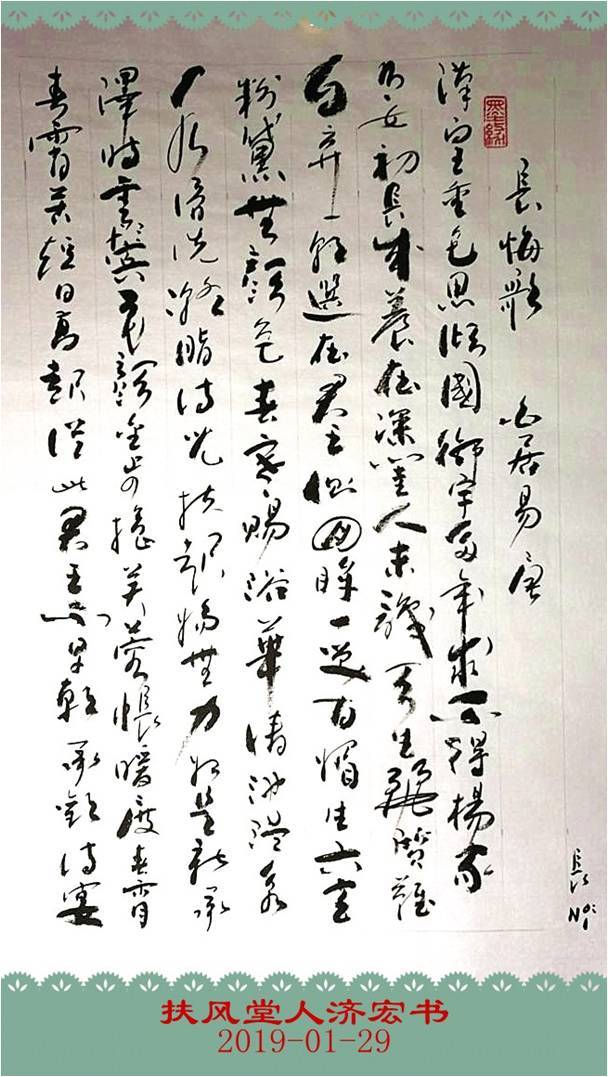 長恨歌 白居易 唐
漢皇重色思傾國御宇多年求不得楊家
有女初長成養在深閨人未識天生麗質難
自棄一朝選在君王側回眸一笑百媚生六宮
粉黛無顏色春寒賜浴華清池溫泉
水滑洗凝脂侍兒扶起嬌無力始是新承
澤時雲鬢花顏金步搖芙蓉帳暖度春宵
春宵苦短日高起從此君王不早朝承歡侍宴
長 No:1
扶风堂人济宏书
2019-01-29